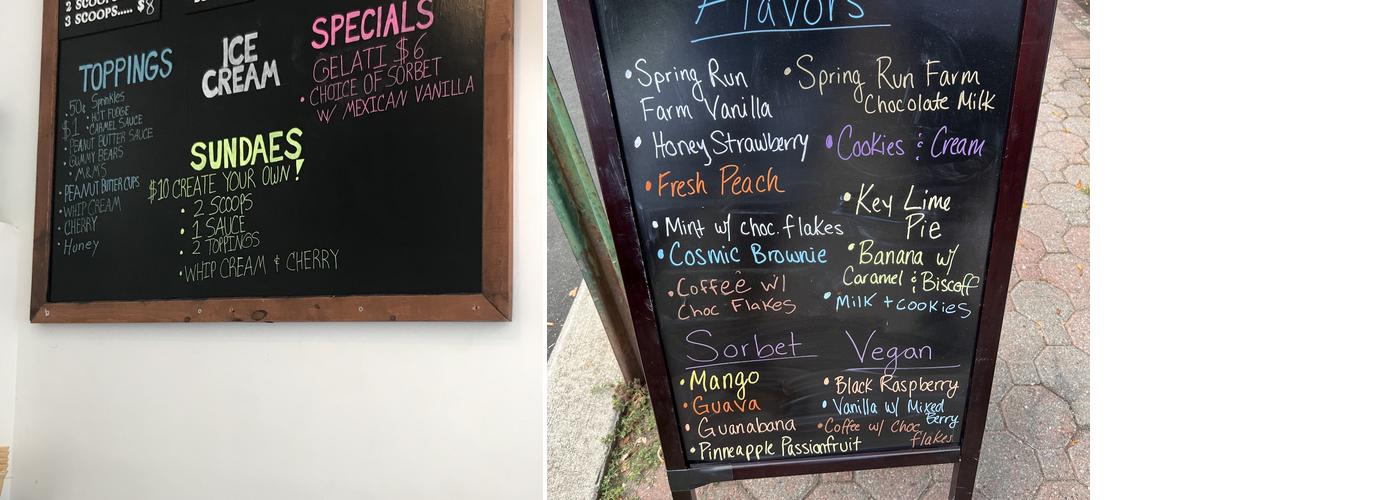 3 SCOOPS..... $8
TOPPINGS
50¢ Sprinkles
• HOT FUDGE
$1 • CARMEL SAUCE
• PEANUT BUTTER SAUCE
• GUMMY BEARS
• M&MS
• PEANUT BUTTER CUPS
• WHIP CREAM
• CHERRY
• Honey
ICE
CREAM
SPECIALS
GELATI $6
• CHOICE OF SORBET
W/ MEXICAN VANILLA
SUNDAES
$10 CREATE YOUR OWN!
• 2 SCOOPS
• 1 SAUCE
• 2 TOPPINGS
• WHIP CREAM & CHERRY
Flavors
• Spring Run
Farm Vanilla
• Honey Strawberry
• Fresh Peach
• Mint w/ choc. flakes
• Cosmic Brownie
• Coffee w/
Choc Flakes
• Spring Run Farm
Chocolate Milk
• Cookies & Cream
• Key Lime
Pie
• Banana w/
Caramel & Biscoff
• Milk + cookies
Sorbet
• Mango
• Guava
• Guanabana
• Pinneapple Passionfruit
Vegan
• Black Raspberry
• Vanilla w/ Mixed
Berry
• Coffee w/ Choc
flakes